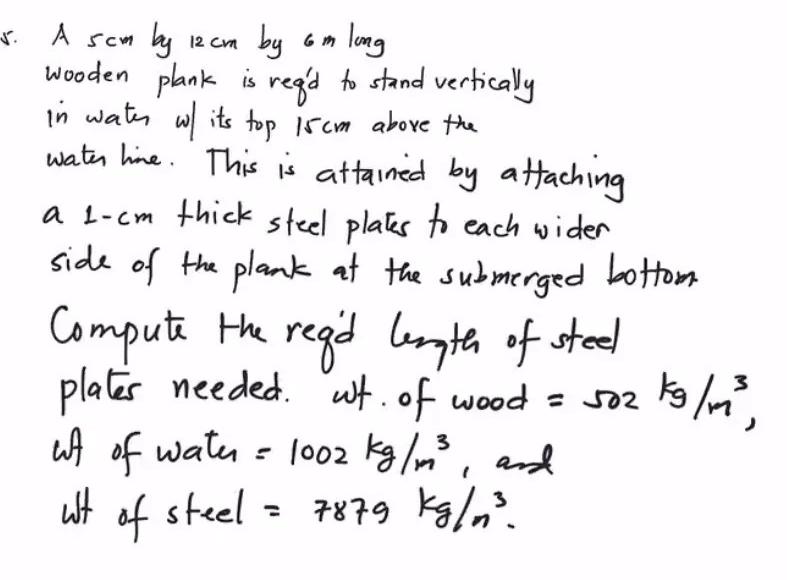 5. A 5cm by 12cm by 6m long
wooden plank is req'd to stand vertically
in water w/ its top 15cm above the
water line. This is attained by attaching
a 1-cm thick steel plates to each wider
side of the plank at the submerged bottom
Compute the req'd length of steel
plates needed. wt. of wood = 502 kg/m³,
wt of water = 1002 kg/m³, and
wt of steel = 7879 kg/m³.